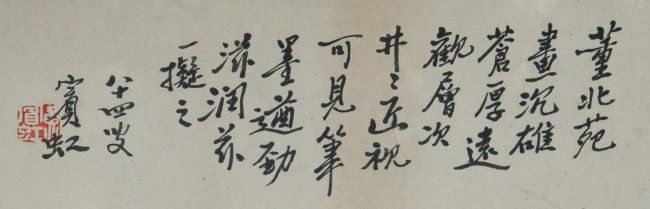 董北苑
畫沉雄
蒼厚遠
觀層次
井々近視
可見筆
墨遒勁
滋润茲
一擬之
八十四叟
賓虹